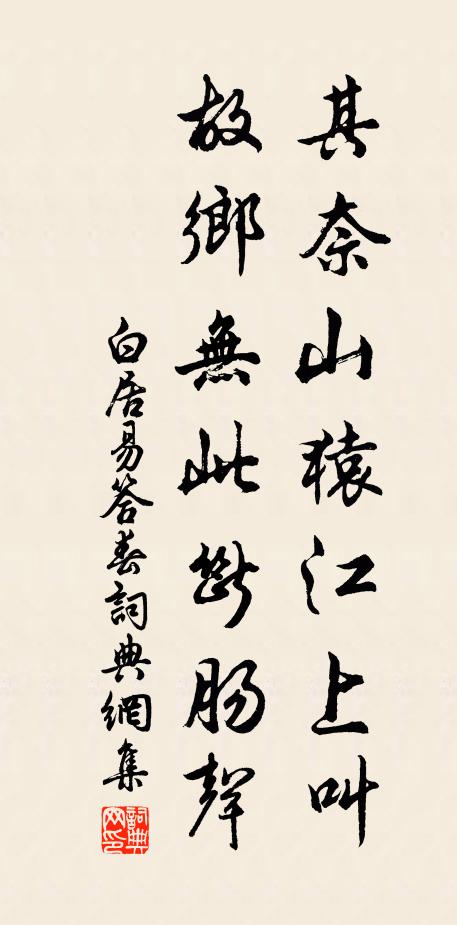 其奈山猿江上叫
故鄉無此斷腸聲
白居易答春詞典網集
詞典網印